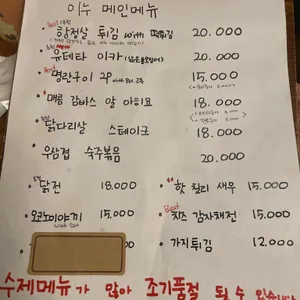 이누 메인메뉴
Best 추천
항정살 튀김 with 20.000
추천 New
유데타 이카 20.000
Best
명란구이 2P with 15.000
매콤 감바스 알 아히요 18.000
닭다리살 스테이크 18.000
우삼겹 숙주볶음 20.000
닭전 18.000
핫 칠리 새우 15.000
오코노미야끼 15.000
Best
치즈 감자채전 15.000
가지튀김 12.000
수제메뉴가 많아 조기품절 될 수